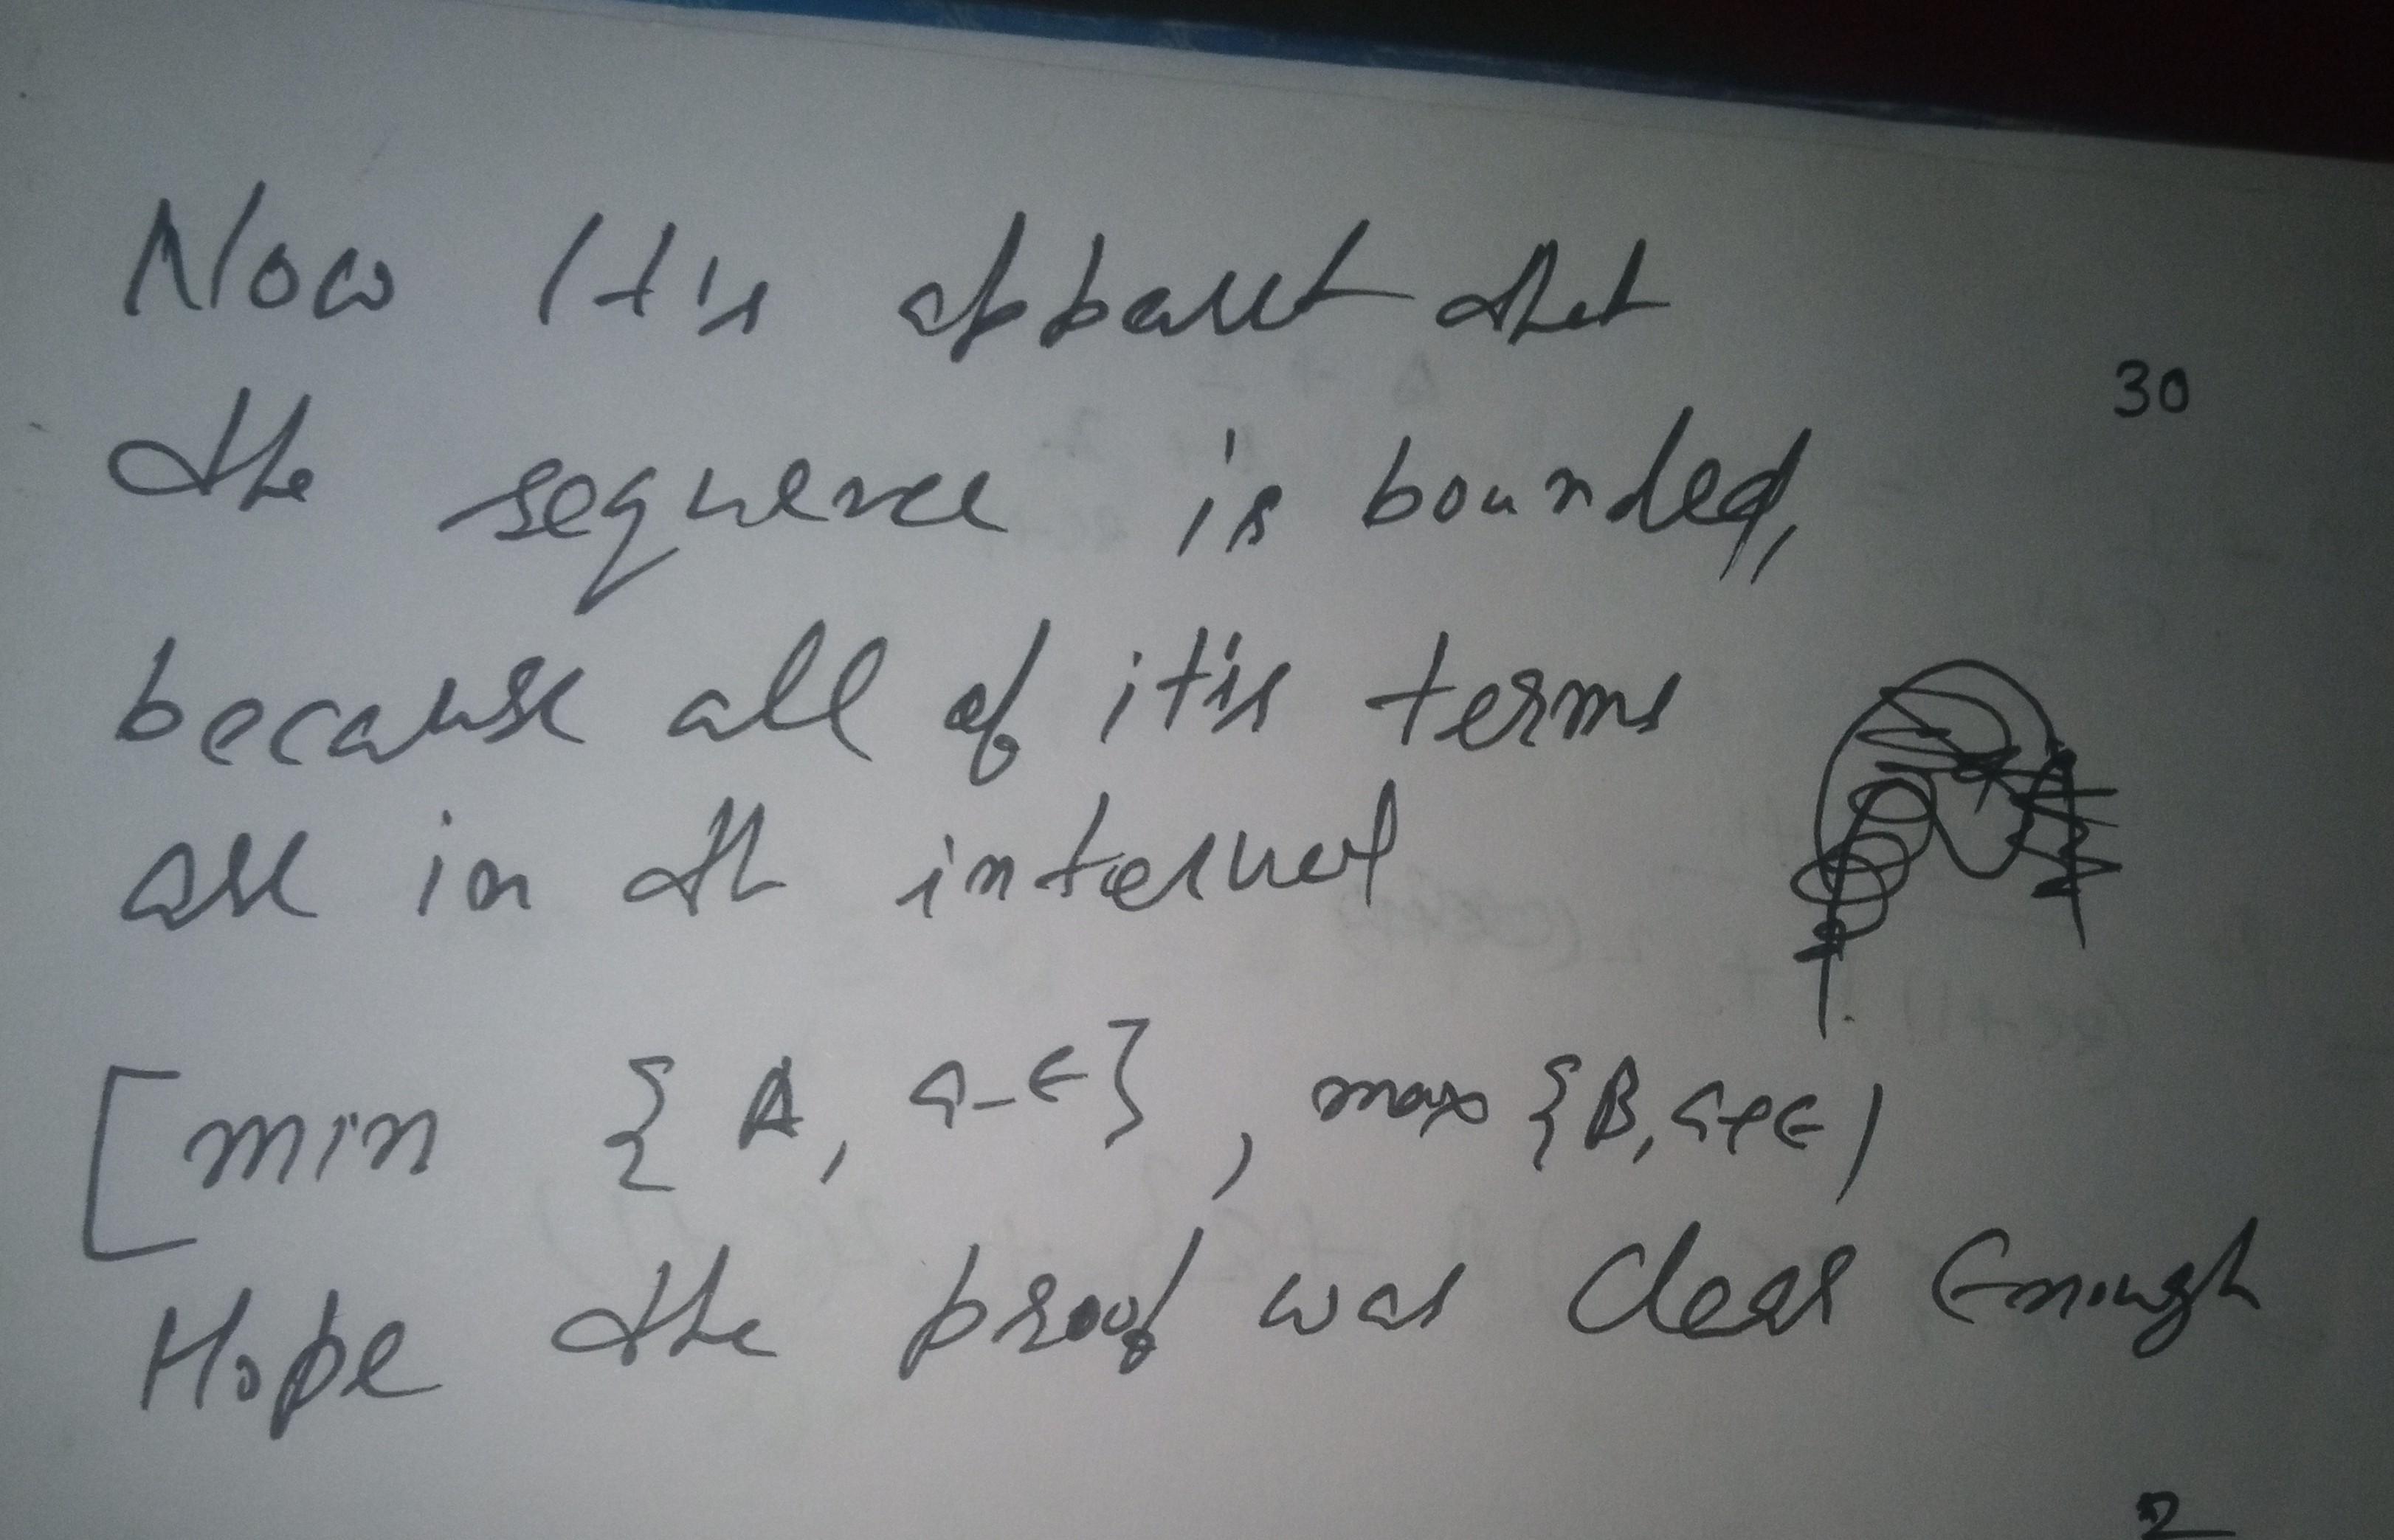 Now It's apparent that
30
the sequence is bounded,
because all of it's terms
are in the interval
[min {A, a-ϵ}, max {B, a+ϵ)
Hope the proof was clear Enough
2